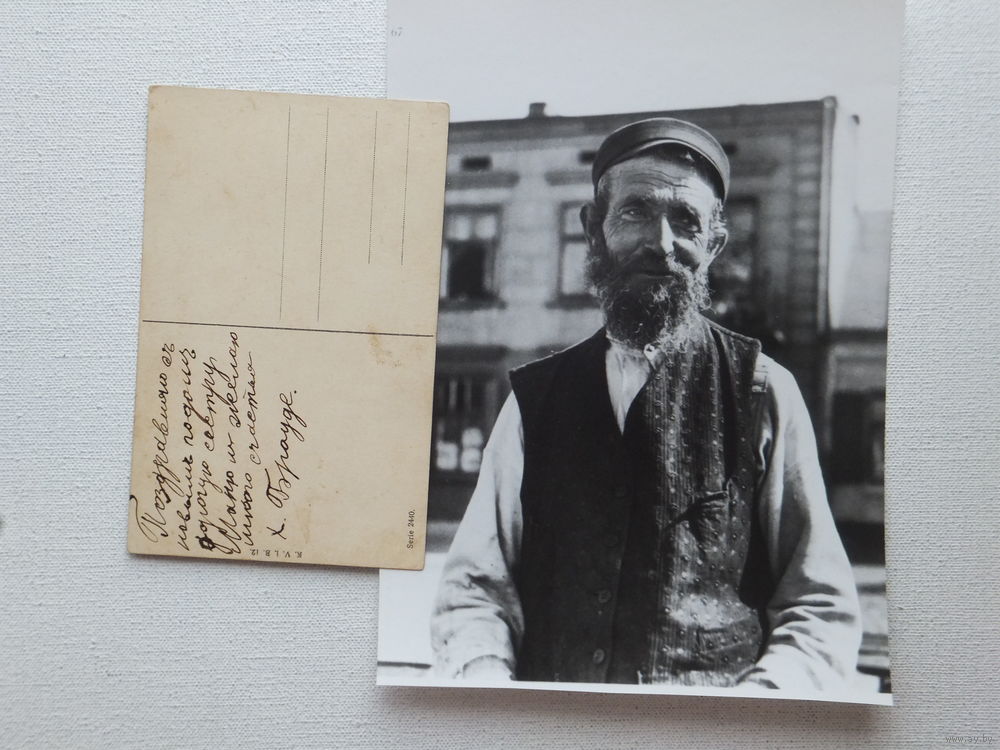 Поздравляю съ
новымъ годомъ
дорогую сестру
Маню и желаю
много счастья
Х. Брауде.
K. V. i. B. 12.
Serie 2440.
67
www.ay.by